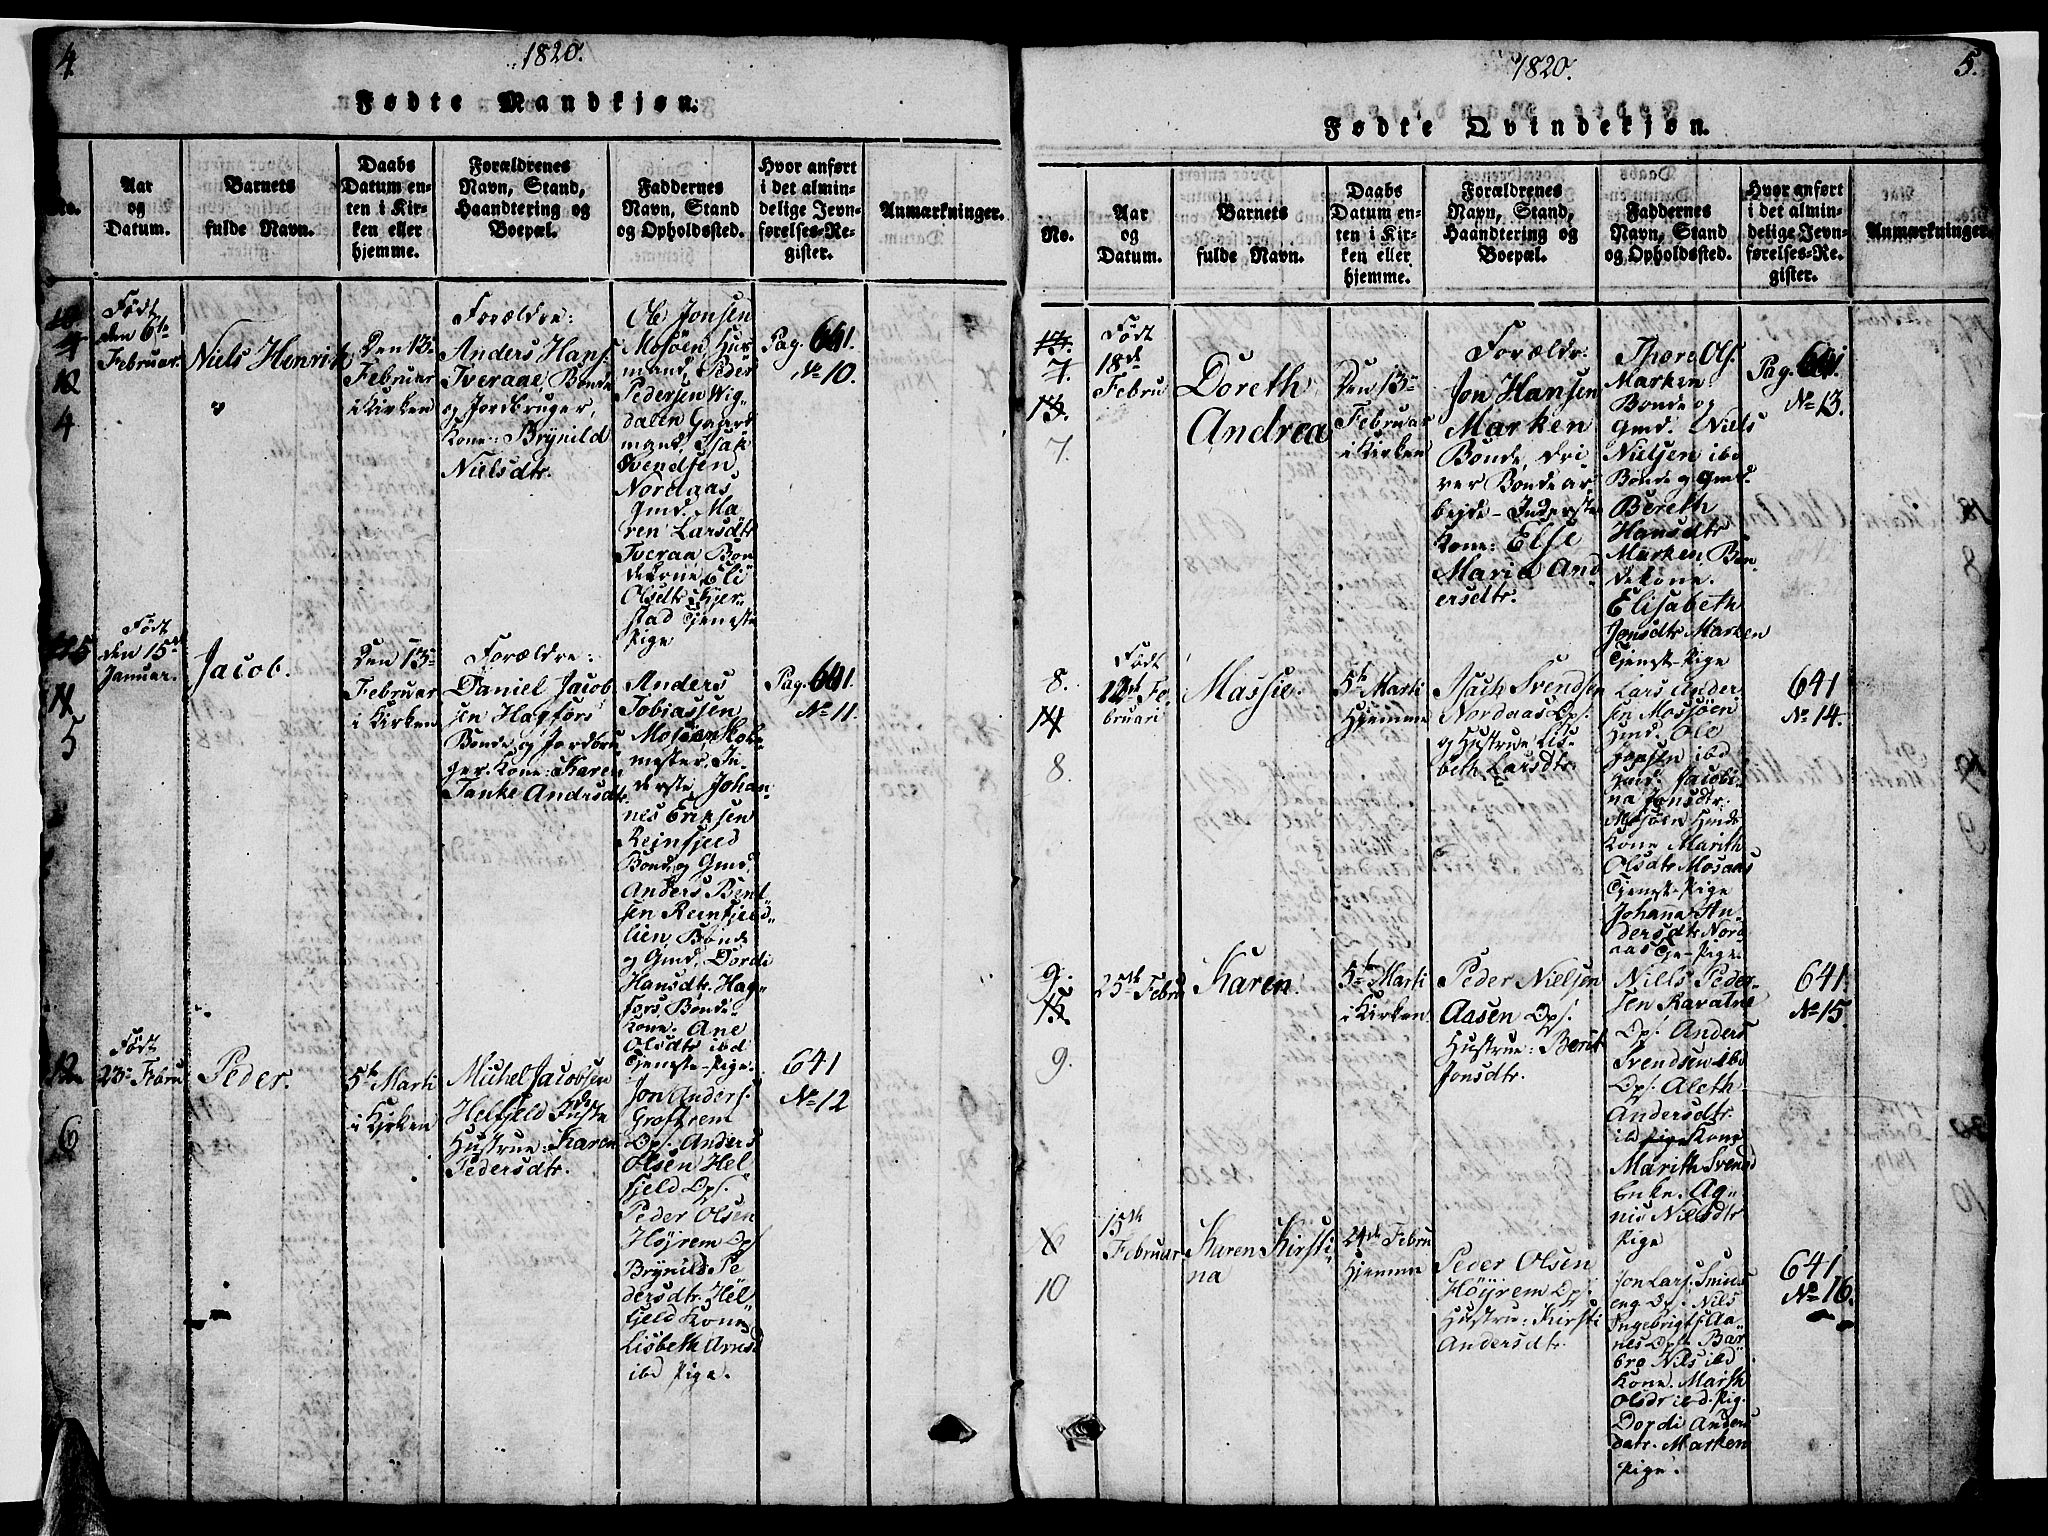 4.
1820.
Fødte Mandkjøn.
No.
Aar
og
Datum.
Barnets
fulde Navn.
Daabs
Datum en-
ten i Kir-
ken eller
hjemme.
Forældrenes
Navn, Stand,
Haandtering og
Boepæl.
Faddernes
Navn, Stand
og Opholdssted.
Hvor anført
i det almin-
delige Jevn-
førelses-Re-
gister.
Anmærkninger.
4
Født
den 6te
Februar.
Niels Henrik
Den 13de
Februar
i Kirken
Forældre:
Anders Hans.
Tveraae, Bonde
og Jordbruger,
Kone: Brynild
Nielsdtr.
Ole Jonsen
Mosøen Huus
mand, Peder
Pedersen Wig-
dalen Gaard
mand, Isak
Svendsen
Nordaas
Gmd. Ma
ren Larsdtr
Tveraa Bon
dekone, Eli
Olsdtr. Kjer-
stad Tjeneste
Pige
Pag. 641.
No 10.
5
Født
den 15de
Januar.
Jacob.
Den 13de
Februar
i Kirken
Forældre:
Daniel Jacob
sen Hagfors
Bonde og Jordbru
ger. Kone: Karen
Tanke Andrsdtr.
Anders
Tobiassen
Mosøen Skole
mester, In-
derste, Johan-
nes Eriksen
Reinfjeld
Bonde og Gmd,
Anders Bent
sen Reinfjeld-
lien, Bonde
og Gmd, Dordi
Hansdtr. Hag-
fors, Bonde-
Kone. Ane
Olsdtr ibd
Tjeneste-Pige.
Pag. 641.
No 11.
12
6
Født
23de Febru
Peder.
5te Marti
i Kirken
Michel Jacobsen
Helfjeld Inste
Hustrue: Karen
Pedersdtr.
Jon Anders.
Groftrem
Ops. Anders
Olsen Hel-
fjeld Ops.
Peder Olsen
Høyrem Ops
Brynild Pe
dersdtr. Hel-
fjeld Kone
Lisbeth Arnsd
ibd Pige.
641
No 12
5.
1820.
Fødte Qvindekjøn.
No.
Aar
og
Datum.
Barnets
fulde Navn.
Daabs
Datum en-
ten i Kir-
ken eller
hjemme.
Forældrenes
Navn, Stand,
Haandtering og
Boepæl.
Faddernes
Navn, Stand
og Opholdssted.
Hvor anført
i det almin-
delige Jevn-
førelses-Re-
gister.
Anmærkninger.
7.
13.
7.
Født
18de
Febru
Doreth
Andrea
Den 13de
Februar
i Kirken
Forældr:
Jon Hansen
Marken
Bonde, dri
ver Bonde ar
bejde - Inderste
Kone: Else
Maria And
ersdtr.
Thore Ols.
Marken
Bonde og
Gmd. Niels
Nielsen ibd
Bonde og Gmd.
Bereth
Hansdtr
Marken, Bon
dekone.
Elisabeth
Jonsdtr Marken
Tjenest-Pige
Pag. 641.
No 13.
8.
14
8.
Født
12te Fe
bruari
Massie.
5te Marti
Hjemme
Isach Svendsen
Nordaas Ops.
og Hustrue Lis-
beth Larsdtr.
Lars Ander
sen Mossøen
Hmd. Ole
Jensen ibd
Hmd. Jacobi-
na Jonsdtr.
Mosøen Hmds
Kone Marith
Olsdtr Mosaas
Tjenest-Pige
Johanna An-
dersdtr Nord
aas Tje-Pige
641
No 14.
9.
15.
9.
25de Febru
Karen.
5te Marti
i Kirken
Peder Nielsen
Aasen Ops.
Hustrue: Berit
Jonsdtr.
Niels Peder-
sen Ravatne
Ops. Anders
Svendsen ibd
Ops. Aleth
Andersdtr.
ibd Kone
Marith Svend
Enke. Ag-
nis Nielsdtr
Pige
641.
No 15.
10
15de
Februar
Karen Kirsti-
na
24de Febru
Hjemme
Peder Olsen
Høyrem Ops.
Hustru: Kirsti
Andersdtr.
Jon Lars.
eng Ops. Nils
Ingebrigts. Aa-
nes Ops. Bar-
bro Nils ibd
Kone. Marth
Olsdr ibd. Pig.
Dordi Anders
datr. Marken
Pige.
641
No 16.